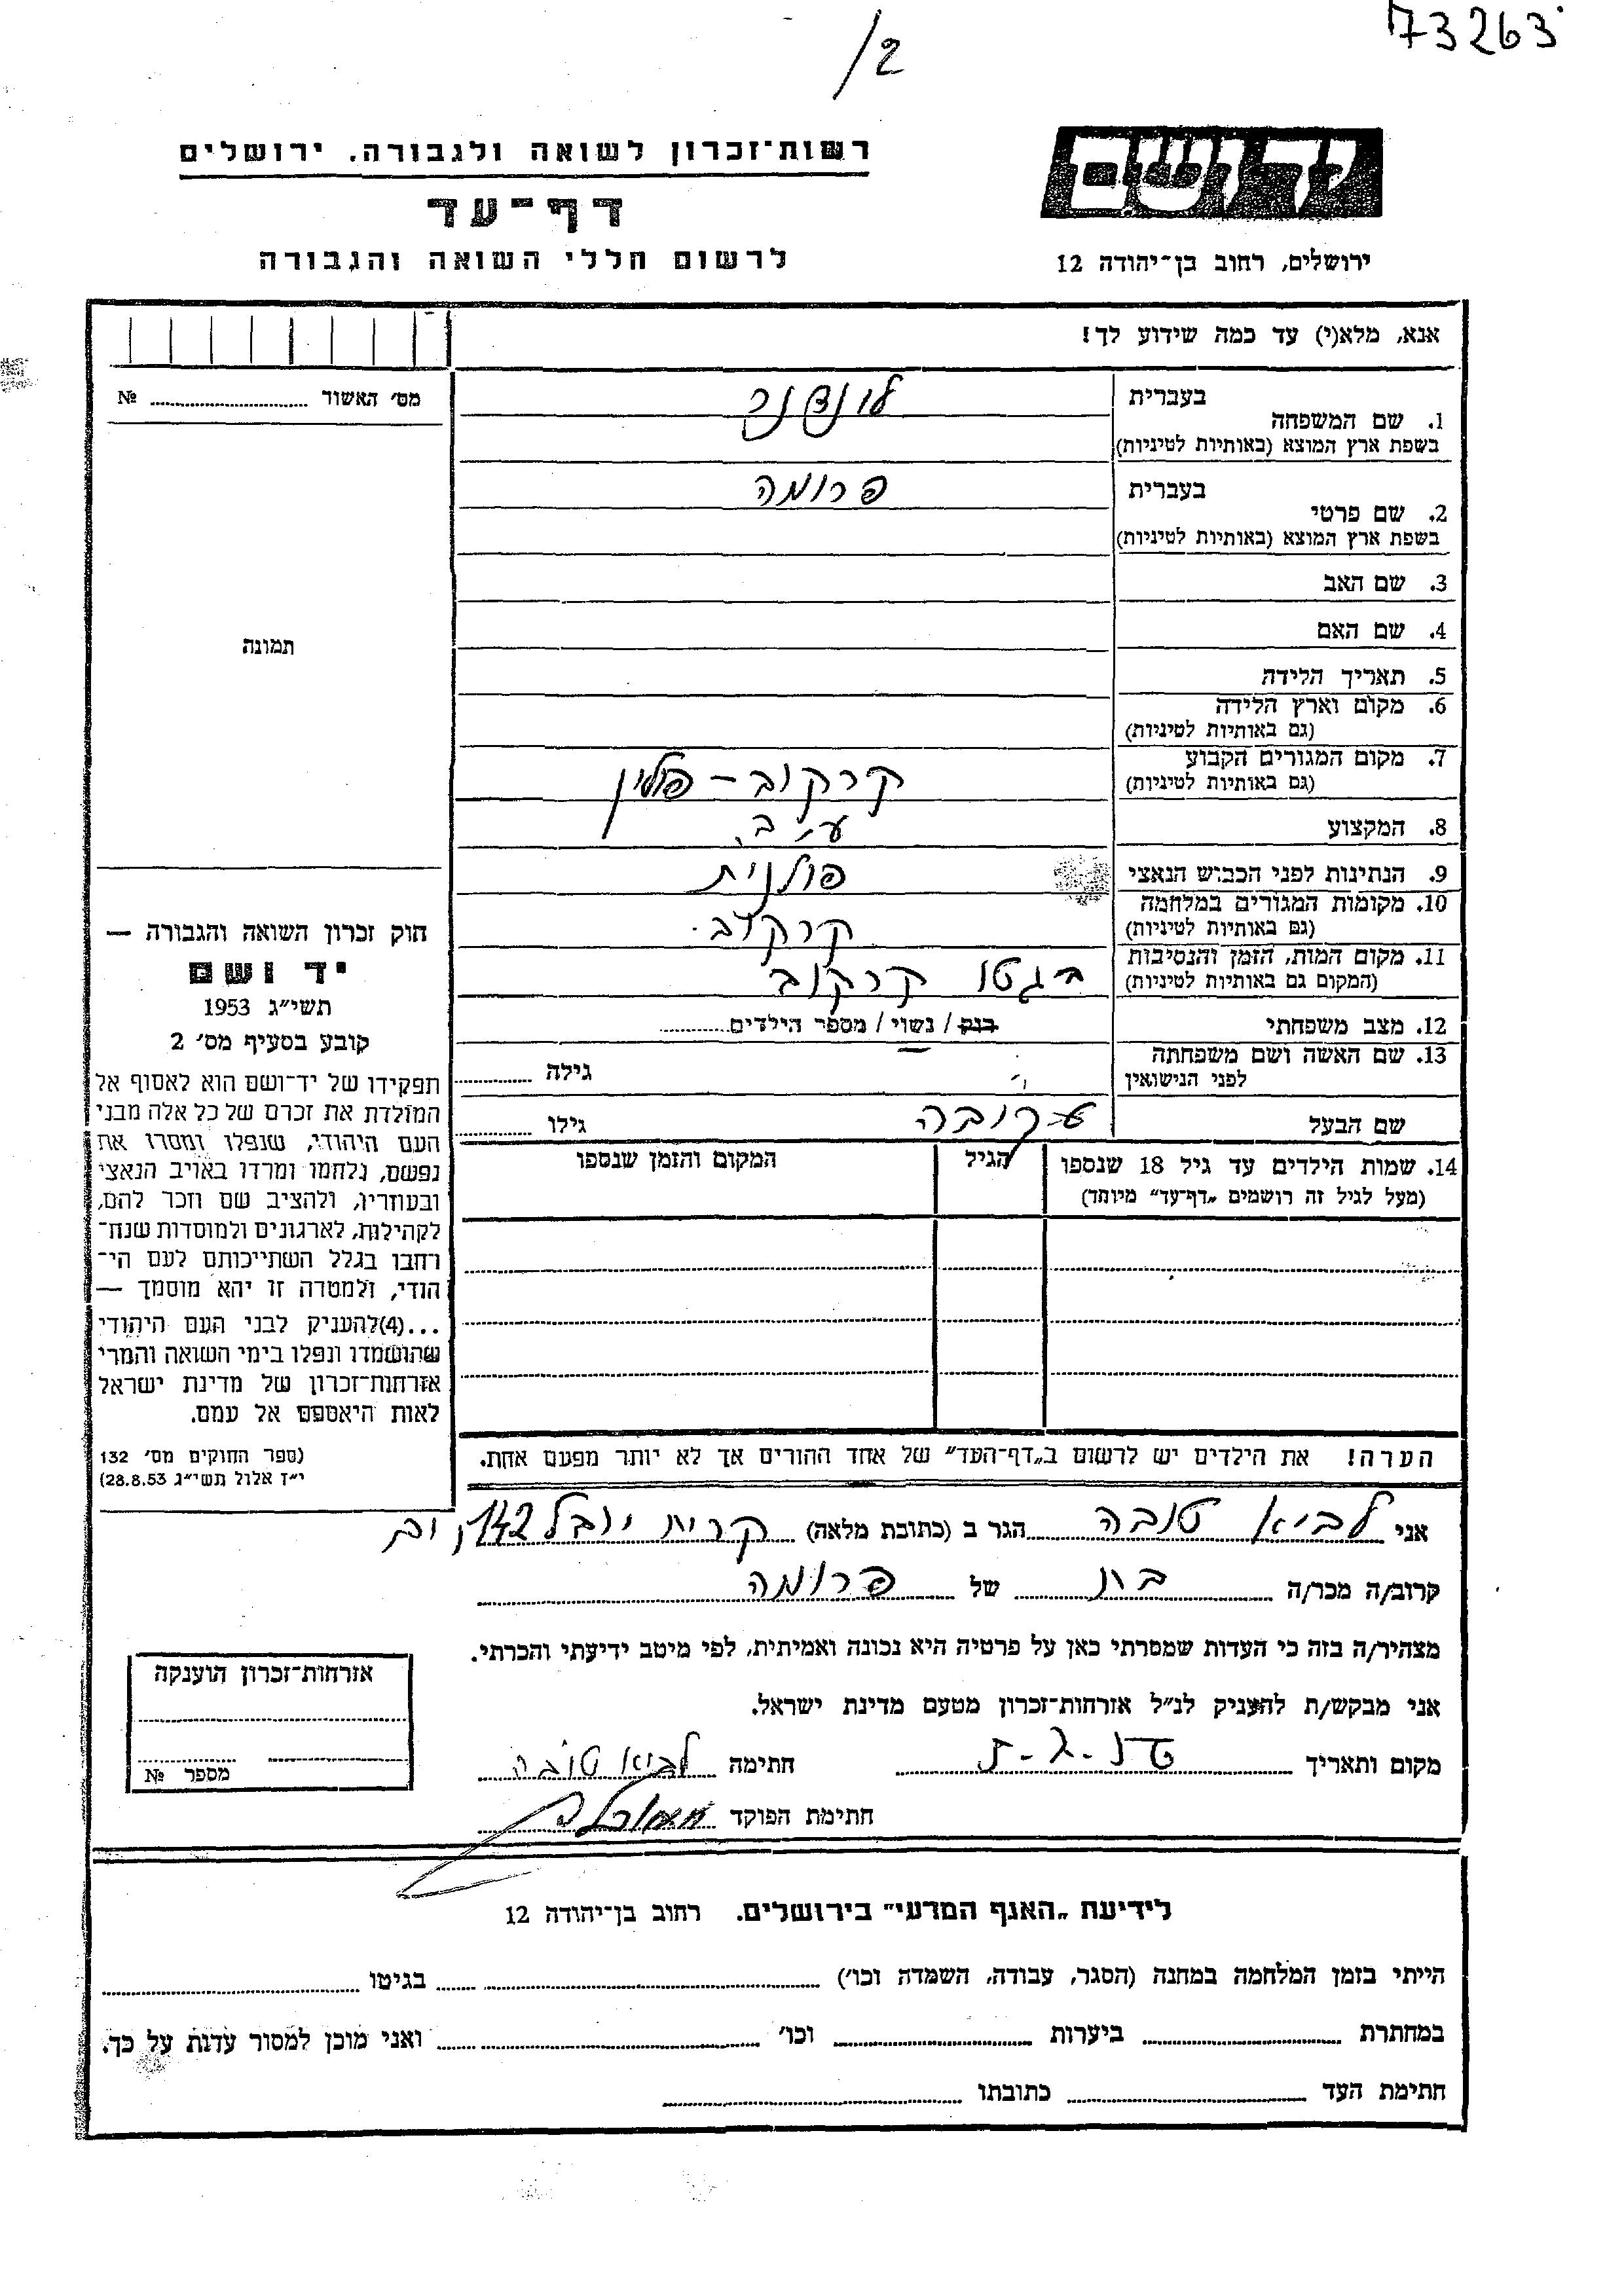 73263
/2
יד ושם
רשות־זכרון לשואה ולגבורה. ירושלים
דף־עד
לרשום חללי השואה והגבורה
ירושלים, רחוב בן־יהודה 12
אנא, מלא(י) עד כמה שידוע לך!
מס׳ האשור ........ №
תמונה
חוק זכרון השואה והגבורה —
יד ושם
תשי״ג 1953
קובע בסעיף מס׳ 2
תפקידו של יד־ושם הוא לאסוף אל
המולדת את זכרם של כל אלה מבני
העם היהודי, שנפלו ומסרו את
נפשם, נלחמו ומרדו באויב הנאצי
ובעוזריו, ולהציב שם וזכר להם,
לקהילות, לארגונים ולמוסדות שנח־
רחבו בגלל השתייכותם לעם הי־
הודי, ולמטרה זו יהא מוסמך —
...(4)להעניק לבני העם היהודי
שהושמדו ונפלו בימי השואה והמרי
אזרחות־זכרון של מדינת ישראל
לאות היאספם אל עמם.
(ספר החוקים מס׳ 132
י״ז אלול תשי״ג 28.8.53)
בעברית
1. שם המשפחה
בשפת ארץ המוצא (באותיות לטיניות)
בעברית פרומה
2. שם פרטי
בשפת ארץ המוצא (באותיות לטיניות)
3. שם האב
4. שם האם
5. תאריך הלידה
6. מקום וארץ הלידה
(גם באותיות לטיניות)
7. מקום המגורים הקבוע קרקוב - פולין
(גם באותיות לטיניות)
8. המקצוע ע. ב.
9. הנתינות לפני הכבוש הנאצי פולנית
10. מקומות המגורים במלחמה קרקוב.
(גם באותיות לטיניות)
11. מקום המות, הזמן והנסיבות בגטו קרקוב
(המקום גם באותיות לטיניות)
12. מצב משפחתי רווק / נשוי / מספר הילדים........
13. שם האשה ושם משפחתה גילה ........
לפני הנישואין
שם הבעל גילו ........
14. שמות הילדים עד גיל 18 שנספו הגיל המקום והזמן שנספו
(מעל לגיל זה רושמים „דף־עד״ מיוחד)
הערה! את הילדים יש לרשום ב„דף־העד״ של אחד ההורים אך לא יותר מפעם אחת.
אני לביא טובה הגר ב (כתובת מלאה) קרית יובל 142
קרוב/ה מכר/ה בת של פרומה
מצהיר/ה בזה כי העדות שמסרתי כאן על פרטיה היא נכונה ואמיתית, לפי מיטב ידיעתי והכרתי.
אני מבקש/ת להעניק לנ״ל אזרחות־זכרון מטעם מדינת ישראל.
מקום ותאריך חתימה לביא טובה
חתימת הפוקד
אזרחות־זכרון הוענקה
מספר №
לידיעת „האגף המדעי״ בירושלים. רחוב בן־יהודה 12
הייתי בזמן המלחמה במחנה (הסגר, עבודה, השמדה וכו׳) ........ בגיטו ........
במחתרת ........ ביערות ........ וכו׳ ........ ואני מוכן למסור עדות על כך.
חתימת העד ........ כתובתו ........